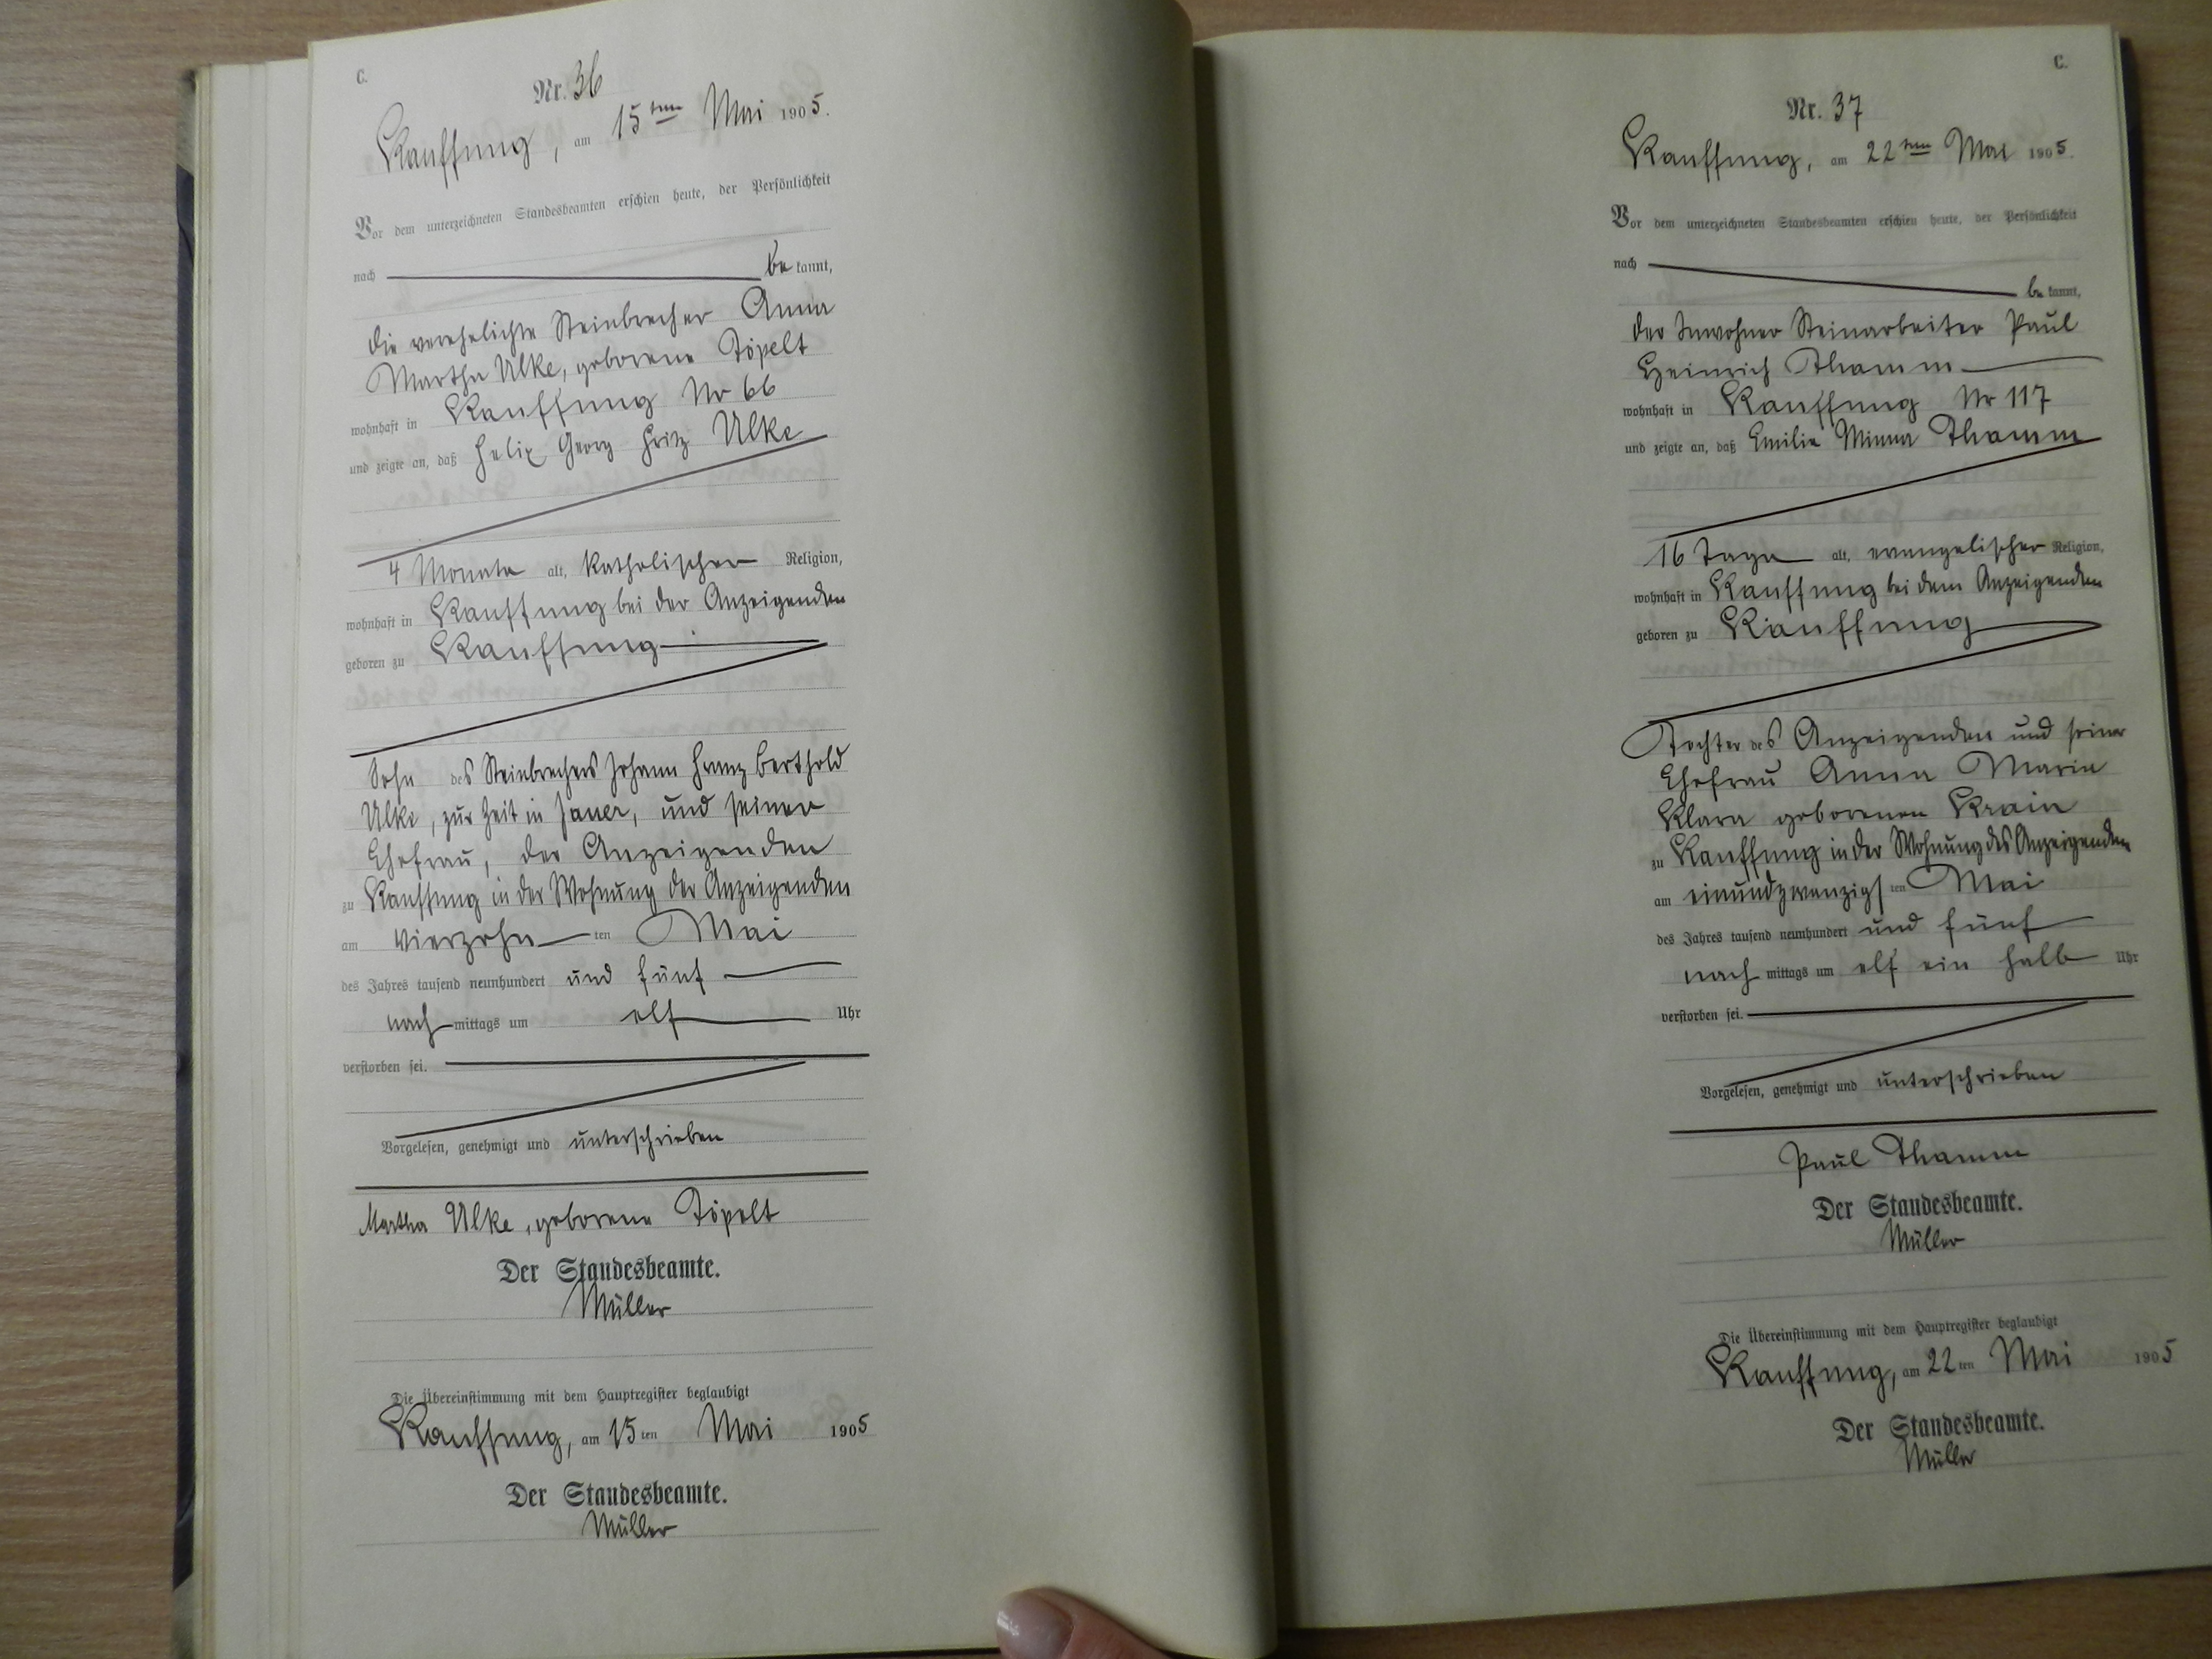 C.
Nr. 36
Kauffung, am 15ten Mai 1905.
Vor dem unterzeichneten Standesbeamten erschien heute, der Persönlichkeit
nach bekannt,
die verehelichte Steinbrecher Anna
Martha Ulke, geborene Töpelt
wohnhaft in Kauffung Nr 66
und zeigte an, daß Felix Georg Fritz Ulke
4 Monate alt, katholischer Religion,
wohnhaft in Kauffung bei der Anzeigenden
geboren zu Kauffung
Sohn des Steinbrechers Johann Franz Berthold
Ulke, zur Zeit in Jauer, und seiner
Ehefrau, der Anzeigenden
zu Kauffung in der Wohnung der Anzeigenden
am vierzehn ten Mai
des Jahres tausend neunhundert und fünf
nach mittags um elf Uhr
verstorben sei.
Vorgelesen, genehmigt und unterschrieben
Martha Ulke, geborene Töpelt
Der Standesbeamte.
Müller
Die Übereinstimmung mit dem Hauptregister beglaubigt
Kauffung, am 15ten Mai 1905
Der Standesbeamte.
Müller
C.
Nr. 37
Kauffung, am 22ten Mai 1905.
Vor dem unterzeichneten Standesbeamten erschien heute, der Persönlichkeit
nach bekannt,
der Inwohner Steinarbeiter Paul
Heinrich Thamm
wohnhaft in Kauffung Nr 117
und zeigte an, daß Emilie Minna Thamm
16 Tage alt, evangelischer Religion,
wohnhaft in Kauffung bei dem Anzeigenden
geboren zu Kauffung
Tochter des Anzeigenden und seiner
Ehefrau Anna Maria
Klara geborenen Krain
zu Kauffung in der Wohnung des Anzeigenden
am einundzwanzigsten Mai
des Jahres tausend neunhundert und fünf
nach mittags um elf ein halb Uhr
verstorben sei.
Vorgelesen, genehmigt und unterschrieben
Paul Thamm
Der Standesbeamte.
Müller
Die Übereinstimmung mit dem Hauptregister beglaubigt
Kauffung, am 22ten Mai 1905
Der Standesbeamte.
Müller